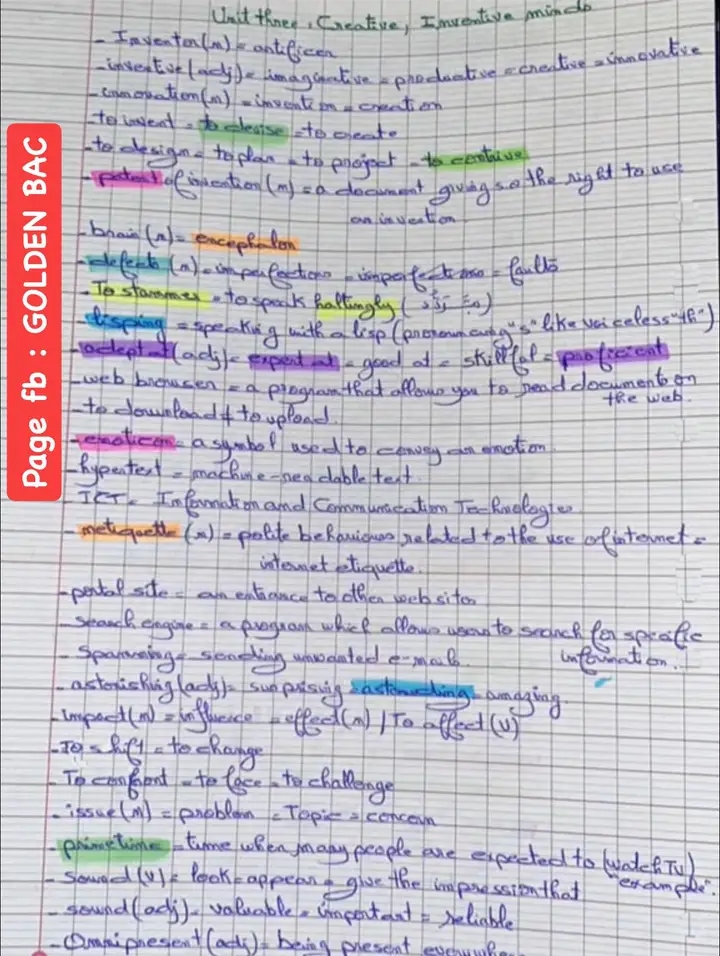 Unit three: Creative, Inventive minds
- Inventor (n) = artificer
- inventive (adj) = imaginative = productive = creative = innovative
- innovation (n) = invention = creation
- to invent = to devise = to create
- to design = to plan = to project = to contrive
- patent of invention (n) = a document giving s.o the right to use
an invention
- brain (n) = encephalon
- defects (n) = imperfections = faults
- To stammer = to speak haltingly
- lisping = speaking with a lisp (pronouncing "s" like voiceless "th")
- adept at (adj) = expert at = good at = skillful = proficient
- web browser = a program that allows you to read documents on
the web.
- to download ≠ to upload.
- emoticon = a symbol used to convey an emotion.
- hypertext = machine-readable text.
- ICT = Information and Communication Technologies
- netiquette (n) = polite behaviours related to the use of internet =
internet etiquette.
- portal site = an entrance to other web sites
- search engine = a program which allows users to search for specific
information.
- Spamming = sending unwanted e-mails.
- astonishing (adj) = surprising = astounding = amazing.
- impact (n) = influence = effect (n) / To affect (v)
- To shift = to change
- To confront = to face = to challenge
- issue (n) = problem = Topic = concern
- prime time = time when many people are expected to (watch TV)
"example".
- sound (v) = look = appear = give the impression that
- sound (adj) = valuable = important = reliable
- Omnipresent (adj) = being present everywhere
Page fb : GOLDEN BAC